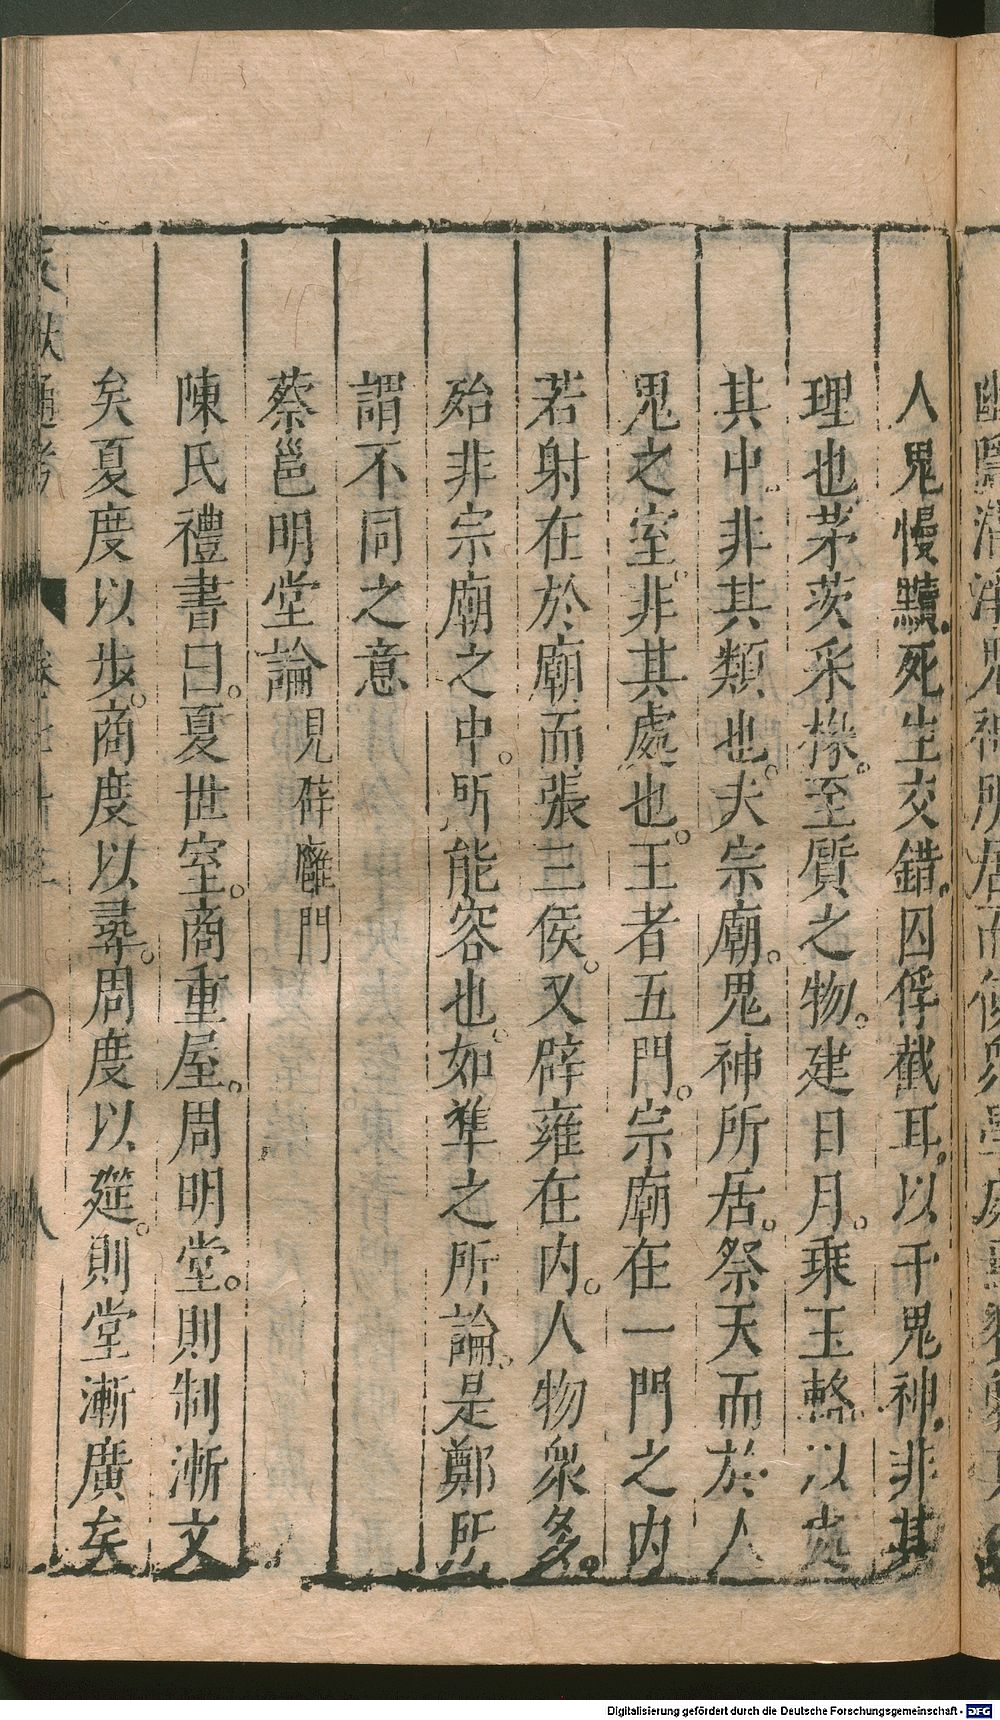 人鬼慢黷死生交錯囚俘截耳以干鬼神非其
理也茅茨采椽至質之物建日月乘玉輅以處
其中非其類也夫宗廟鬼神所居祭天而於人
鬼之室非其處也王者五門宗廟在一門之內
若射在於廟而張三侯又辟雍在內人物衆多
殆非宗廟之中所能容也如準之所論是鄭所
謂不同之意
蔡邕明堂論見辟廱門
陳氏禮書曰夏世室商重屋周明堂則制漸文
矣夏度以步商度以尋周度以筵則堂漸廣矣
Digitalisierung gefördert durch die Deutsche Forschungsgemeinschaft - DFG